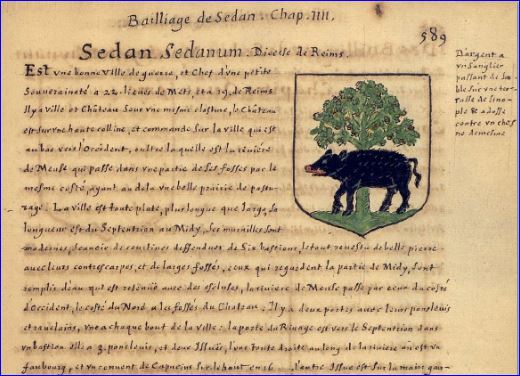 Bailliage de Sedan. Chap. IIII.
589
Sedan Sedanum. Diocese de Reims.
Est vne bonne Ville de guerre, et Chef d'vne petite
Souueraineté a 22. lieues de Mets, et a 19. de Reims
Il y a Ville et Château sous vne mesme closture, le Château
est sur vne haute colline, et commande sur la ville qui est
au bas vers l'Occident, outre laquelle est la riuière
de Meuse qui passe dans vne partie de ses fosses par le
mesme costé, ayant au dela vne belle prairie de pastu-
rage. La ville est toute plate, plus longue que large, sa
longueur est du Septention au Midy, ses murailles sont
modernes, de courtines deffendues de Six bastions, le tout reuestu de belle pierre
auec leurs contrescarpes, et de larges fossés, ceux qui regardent la partie de Médy, sont
remplis d'eau qui est retenüe auec des escluses, la riuiere de Meuse passe par ceux du costé
d'Occident, le costé du Nord a les fossés du Chateau: Il y a deux portes auec leurs pontleuis
et rauelains, vne a chaque bout de la ville: la porte du Riuage est vers le Septention dans
vn bastion elle a 3. pontleuis, et deux Issües, l'vne toute droite au long de la riuiere ou est vn
faubourg, et vn conuent de Capucins sur le haut en 16 l'autre Issue est sur la main gau-
D'argent a
vn sanglier
passant de sa-
ble sur vne ter-
rasse de sino-
ple & adossé
contre vn ches-
ne de mesme